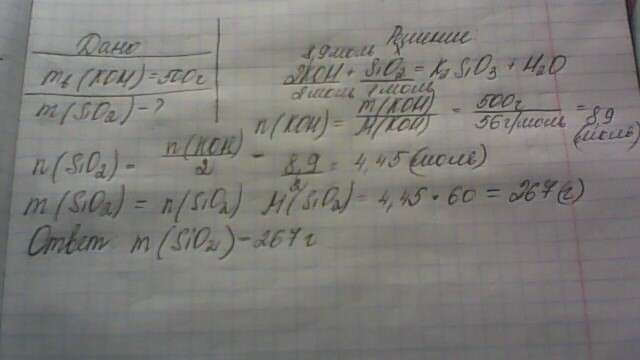 Дано
m в (KOH) = 500 г
m (SiO₂) - ?
Решение
8,9 моль
2KOH + SiO₂ = K₂SiO₃ + H₂O
2 моль 1 моль
n (KOH) = m(KOH) / M(KOH) = 500 г / 56 г/моль = 8,9 (моль)
n (SiO₂) = n(KOH) / 2 = 8,9 / 2 = 4,45 (моль)
m (SiO₂) = n(SiO₂) M(SiO₂) = 4,45 · 60 = 267 (г)
Ответ m (SiO₂) - 267 г